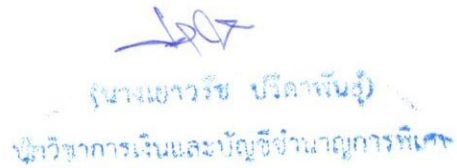 (นางเยาวรัช ปรีดาพันธุ์)
นักวิชาการเงินและบัญชีชำนาญการพิเศษ